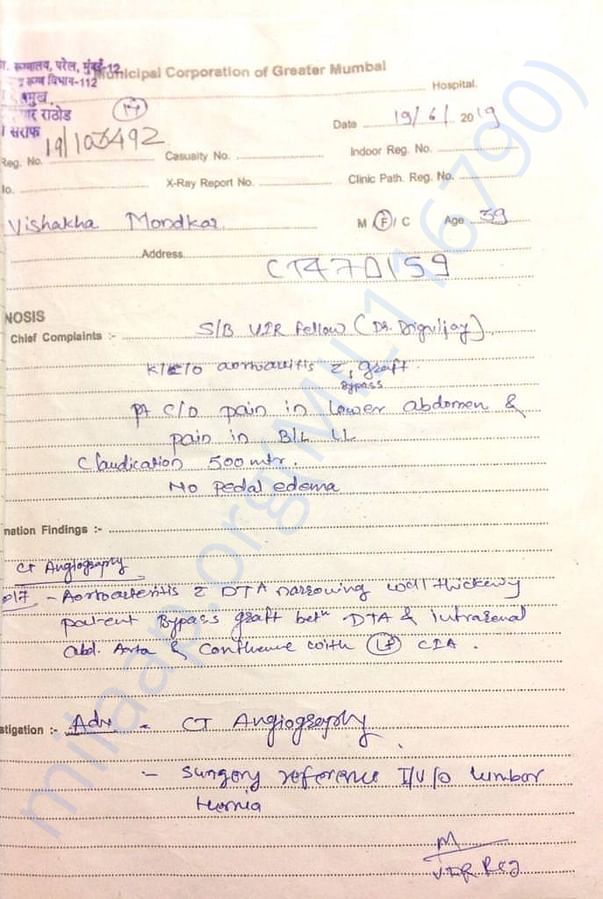 रुग्णालय, परेल, मुंबई-12
रुग्ण विभाग-112
प्रमुख
राठोड
सराफ
Municipal Corporation of Greater Mumbai
Hospital.
Date 19/6/2019
Reg. No. 19/103492
Casualty No.
Indoor Reg. No.
X-Ray Report No.
Clinic Path. Reg. No.
Vishakha Mondkar
M F / C Age 39
Address
CT470159
NOSIS
Chief Complaints :-
S/B VIR Fellow (Dr. Digvijay)
K/c/o aortoarteritis c graft
Bypass
pt c/o pain in lower abdomen &
pain in B/L LL
Claudication 500 mtr.
No pedal edema
nation Findings :-
CT Angiography
2017 - Aortoarteritis c DTA narrowing wall thickening
patent Bypass graft betn DTA & infrarenal
abd. Aorta & Confluence with Lt CIA.
stigation :- Adv - CT Angiography
- Surgery reference I/v/o lumbar
Hernia
VIR Reg
milaap.org(MIL116790)